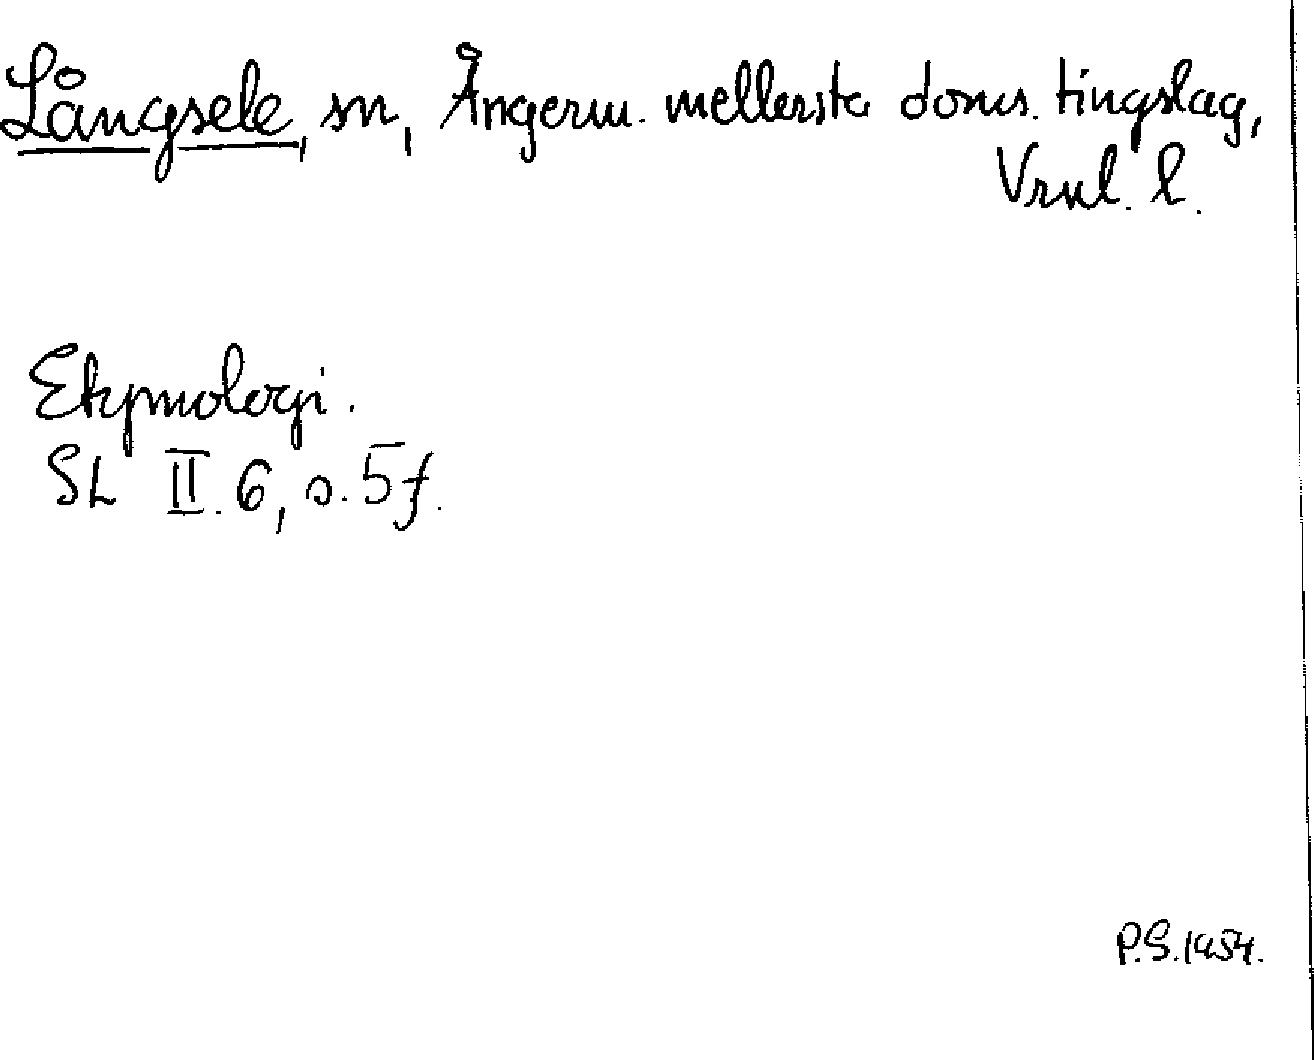 Långsele, sn, Ångerm. mellersta doms. tingslag,
Vrnl. l.
Etymologi.
SL II.6, s. 5f.
P.S. 1954.